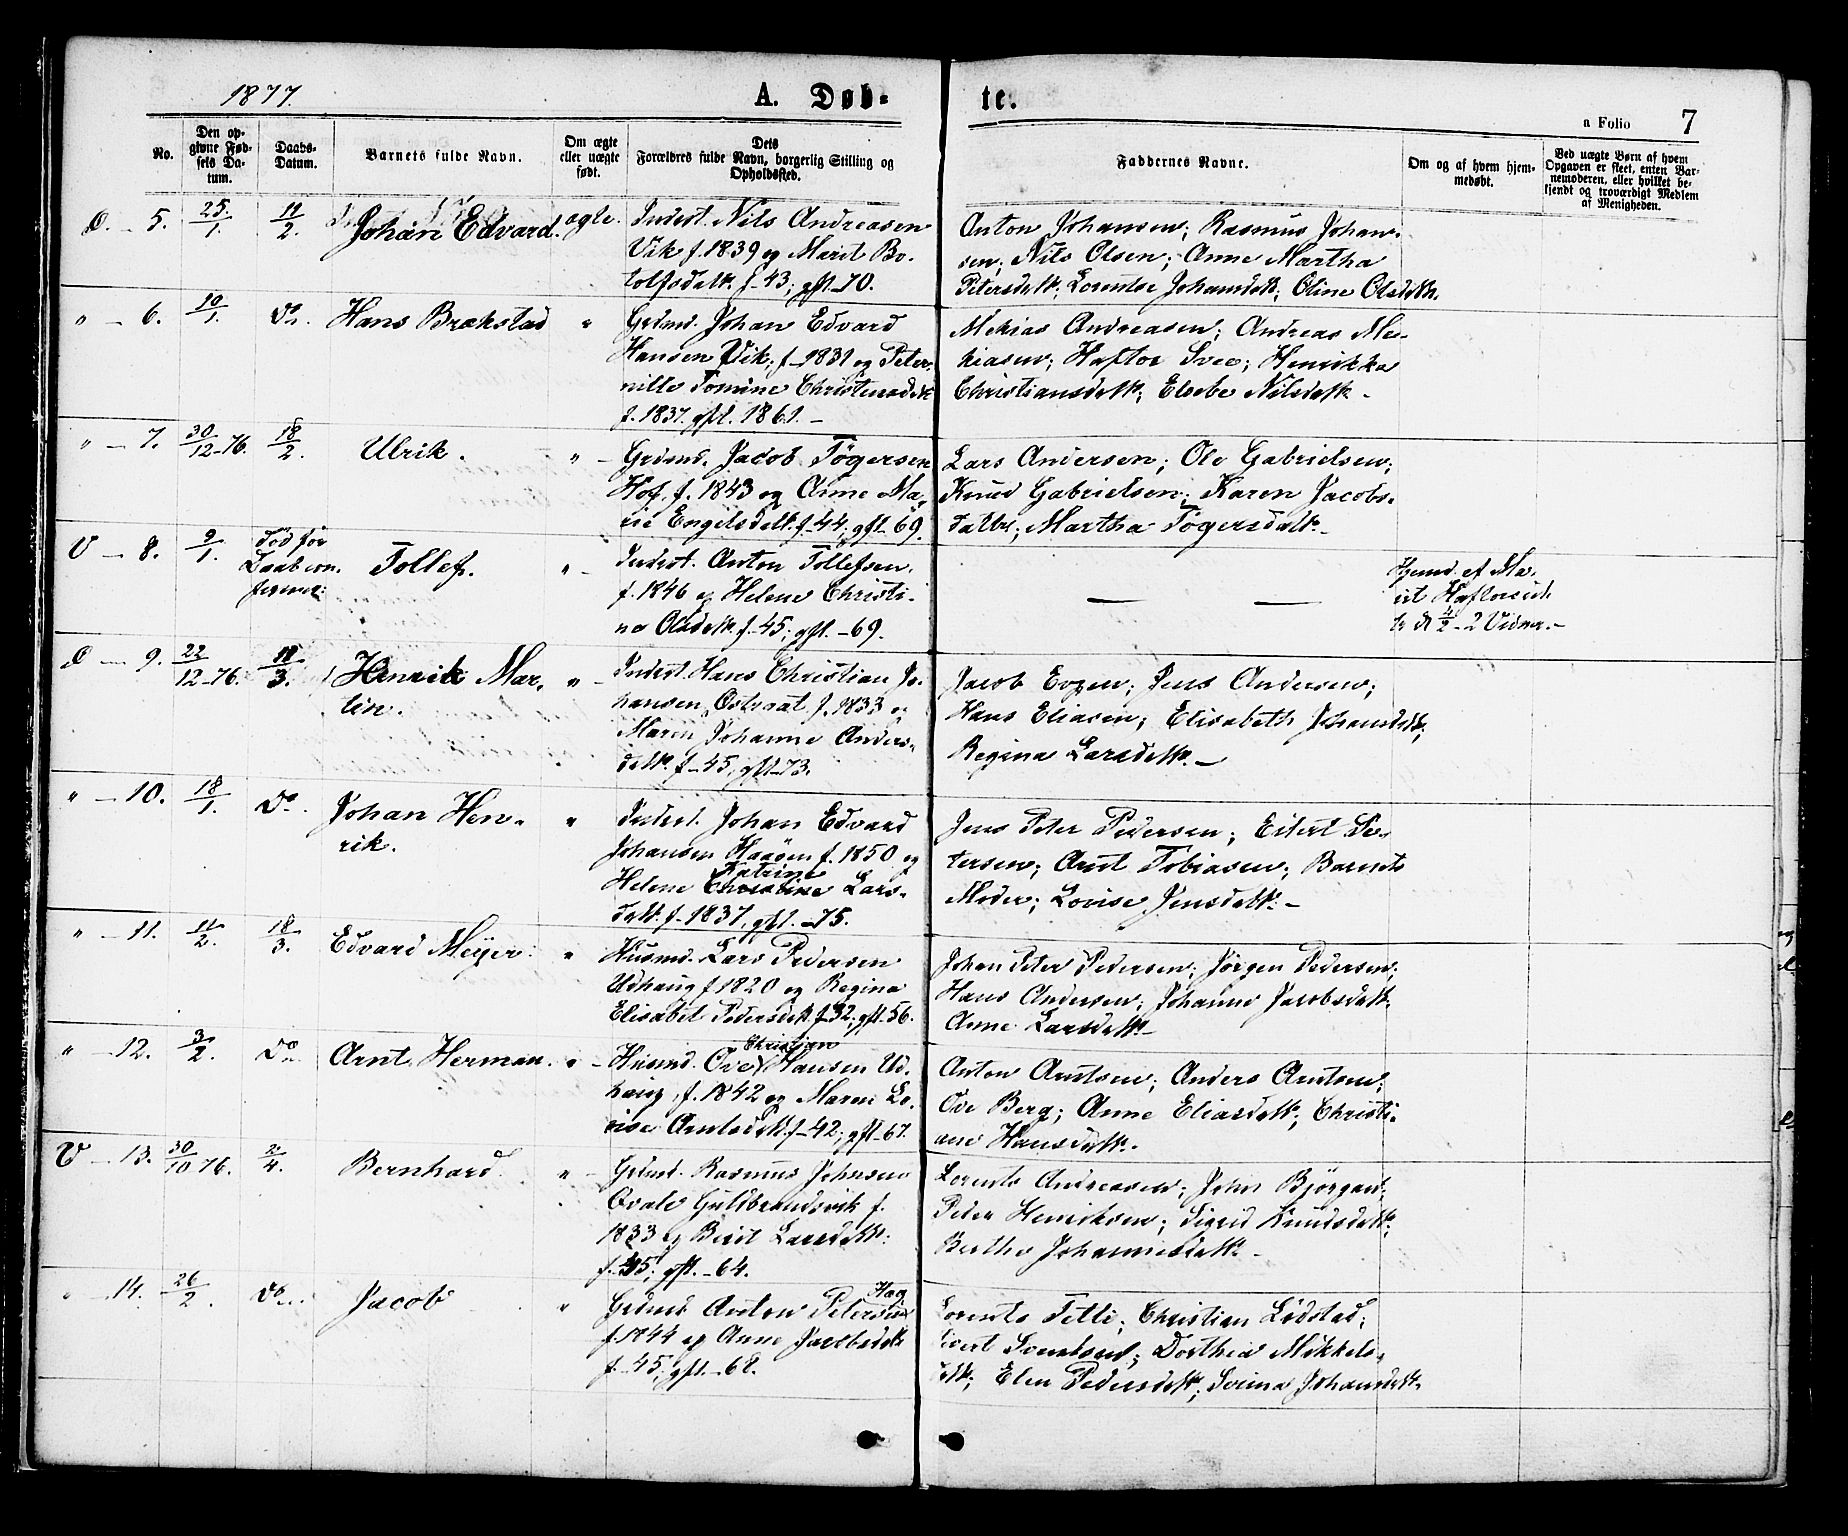 1877.
A. Døb-
te.
a Folio 7
No.
Den op-
givne Fød-
sels Da-
tum.
Daabs-
Datum.
Barnets fulde Navn.
Om ægte
eller uægte
født.
Dets
Forældres fulde Navn, borgerlig Stilling og
Opholdssted.
Faddernes Navne.
Om og af hvem hjem-
medøbt.
Ved uægte Børn af hvem
Opgaven er skeet, enten Bar-
nemoderen, eller hvilket be-
kjendt og troværdigt Medlem
af Menigheden.
O. - 5. 25/1. 11/2. Johan Edvard. ægte.
Inderst. Nils Andreasen
Vik f. 1839 og Marit Bo-
tolfsdatt. f. -43; gft. -70.
Anton Johansen; Rasmus Johan-
sen; Nils Olsen; Anne Martha
Petersdatt.; Lorentse Johansdatt.; Oline Olsdatt.
" - 6. 10/1. Do. Hans Brækstad "
Grdmd. Johan Edvard
Hansen Vik, f. 1831 og Peter-
nille Tomine Christensdatt
f. 1837. gft. 1861. -
Mekias Andreasen; Andreas Me-
kiasen; Haftor Svee; Henrikka
Christiansdatt.; Elsebe Nilsdatt. -
" - 7. 30/12-76. 18/2. Ulrik. " -
Grdmd. Jacob Tøgersen
Hof, f. 1843 og Anne Ma-
rie Engelsdatt. f. -44; gft. 69.
Lars Andersen; Ole Gabrielsen;
Knud Gabrielsen; Karen Jacobs-
datter; Martha Tøgersdatt. -
V - 8. 9/1. Død før
Daab con-
firmer:
Tollef. " -
Inderst. Anton Tollefsen.
f. 1846 og Helene Christi-
ne Olsdatt. f. -45; gft. -69.
— —
Hjemd. af Ma-
rit Haftorsd.
tr d 4/2 - 2 Vidner. -
O - 9. 22/12-76. 18/3. Henrik Mar-
tin. " -
Inderst. Hans Christian Jo-
hansen Østraat f. 1833 og
Maren Johanne Anders-
datt. f. -45; gft. -73.
Jacob Evgen; Jens Andersen;
Hans Eliasen; Elisabeth Johansdatt.;
Regina Larsdatt. -
" - 10. 18/1. Do. Johan Hen-
rik. "
Inderst. Johan Edvard
Johansen Haasen f. 1850 og
Katrine
Helene Christine Lars-
datt. f. 1837, gft. -75.
Jens Peter Pedersen; Eilert Pe-
tersen; Arnt Tobiasen; Barnets
Moder; Lovise Jensdatt. -
" - 11. 11/2. 18/3. Edvard Meyer. "
Husmd. Lars Pedersen
Udhaug f 1820 og Regina
Elisabet Pedersdatt. f. 32; gft. 56.
Johan Peter Pedersen; Jørgen Pedersen;
Hans Andersen; Johanne Jacobsdatt.
Anne Larsdatt. -
" - 12. 3/2. Do. Arnt Herman. " -
Christian
Husmd. Ove Hansen Ud-
haug, f. 1842 og Maren Lo-
vise Arntsdatt. f. -42; gft. -67.
Anton Arntsen; Anders Arntsen;
Ove Berg; Anne Eliasdatt.; Christi-
ane Hansdatt. -
V - 13. 30/10 76. 2/4. Bernhard. " -
Grdmd. Rasmus Johnsen
Ovale Guldbrandsvik f.
1833 og Berit Larsdatt.
f. 35; gft. -64.
Lorents Andreasen; John Bjørgan;
Peder Henriksen; Sigrid Knudsdatt.;
Berthe Johannesdatt. -
" - 14. 26/2. Do. Jacob "
Hag
Grdmd. Anton Petersen
f. 1844 og Anne Jacobsdatt
f. -45; gft. -68.
Lorents Tetli; Christian Lødstad;
Sivert Sventsen; Dorthea Mikkels-
datt.; Elen Pedersdatt.; Serina Johansdatt.